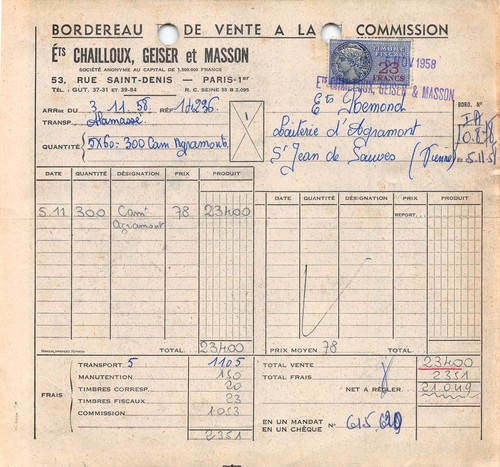 BORDEREAU DE VENTE A LA COMMISSION
Éts CHAILLOUX, GEISER et MASSON
SOCIÉTÉ ANONYME AU CAPITAL DE 1.500.000 FRANCS
53, RUE SAINT-DENIS — PARIS-1er
TÉL. : GUT. 37-31 et 39-84 R. C. SEINE 55 B 2.095
TIMBRE FISCAL
23
FRANCS
NOV 1958
Ets CHAILLOUX, GEISER & MASSON
BORD. N°
ARRte DU 3.11.58. RÉF
TRANSP.
QUANTITÉ 5X60=300 Cam Agramont
1
Ets Hemond
Laiterie d'Agramont
St Jean de Sauves (Vienne)
5.11.5
DATE QUANTITÉ DÉSIGNATION PRIX PRODUIT
5.11 300 Camt 78 23400
agramont
TOTAL 23400
DATE QUANTITÉ DÉSIGNATION PRIX PRODUIT
REPORT
PRIX MOYEN 78 TOTAL
FRAIS
TRANSPORT 5 1105
MANUTENTION 150
TIMBRES CORRESP. 20
TIMBRES FISCAUX 23
COMMISSION 1053
2351
TOTAL VENTE 23400
TOTAL FRAIS 2351
NET A RÉGLER 21.049
EN UN MANDAT
EN UN CHÈQUE N° 615.620